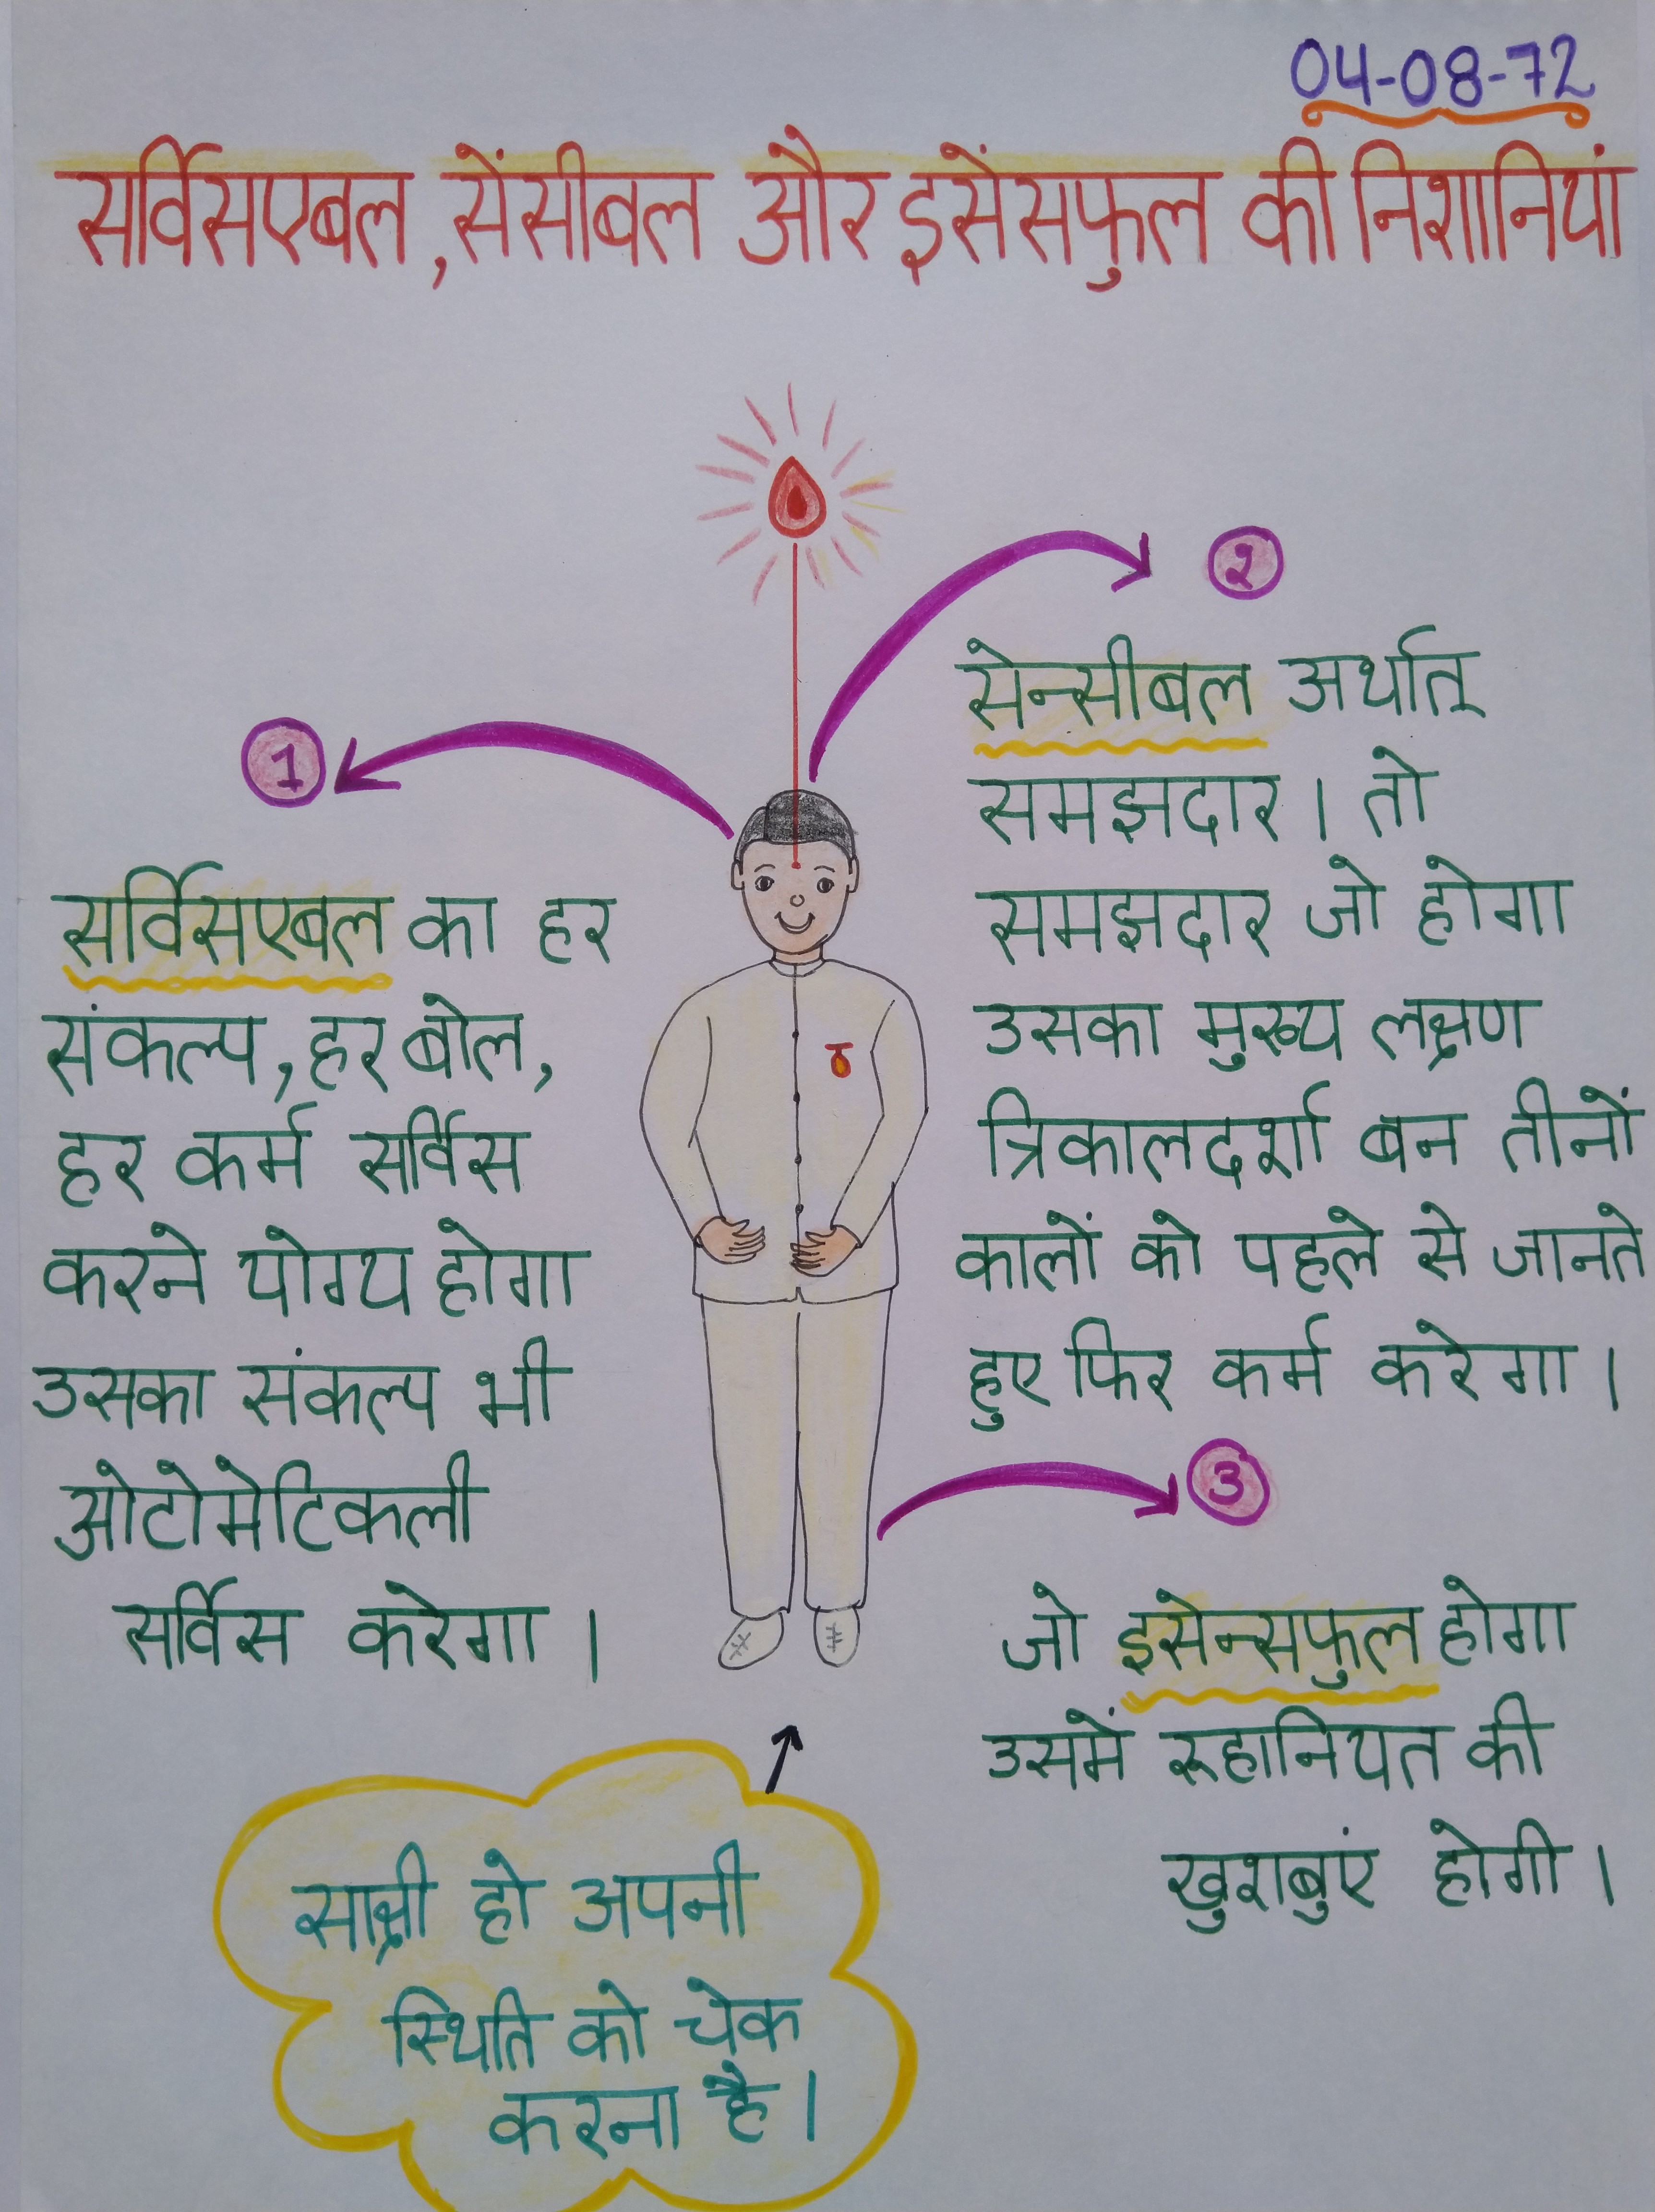 04-08-72
सर्विसएबल, सेंसीबल और इसेंसफुल की निशानियां
1
सर्विसएबल का हर
संकल्प, हर बोल,
हर कर्म सर्विस
करने योग्य होगा
उसका संकल्प भी
ओटोमेटिकली
सर्विस करेगा ।
२
सेन्सीबल अर्थात्
समझदार । तो
समझदार जो होगा
उसका मुख्य लक्षण
त्रिकालदर्शी बन तीनों
कालों को पहले से जानते
हुए फिर कर्म करेगा ।
3
जो इसेन्सफुल होगा
उसमें रूहानियत की
खुशबुएं होगी ।
साक्षी हो अपनी
स्थिति को चेक
करना है ।